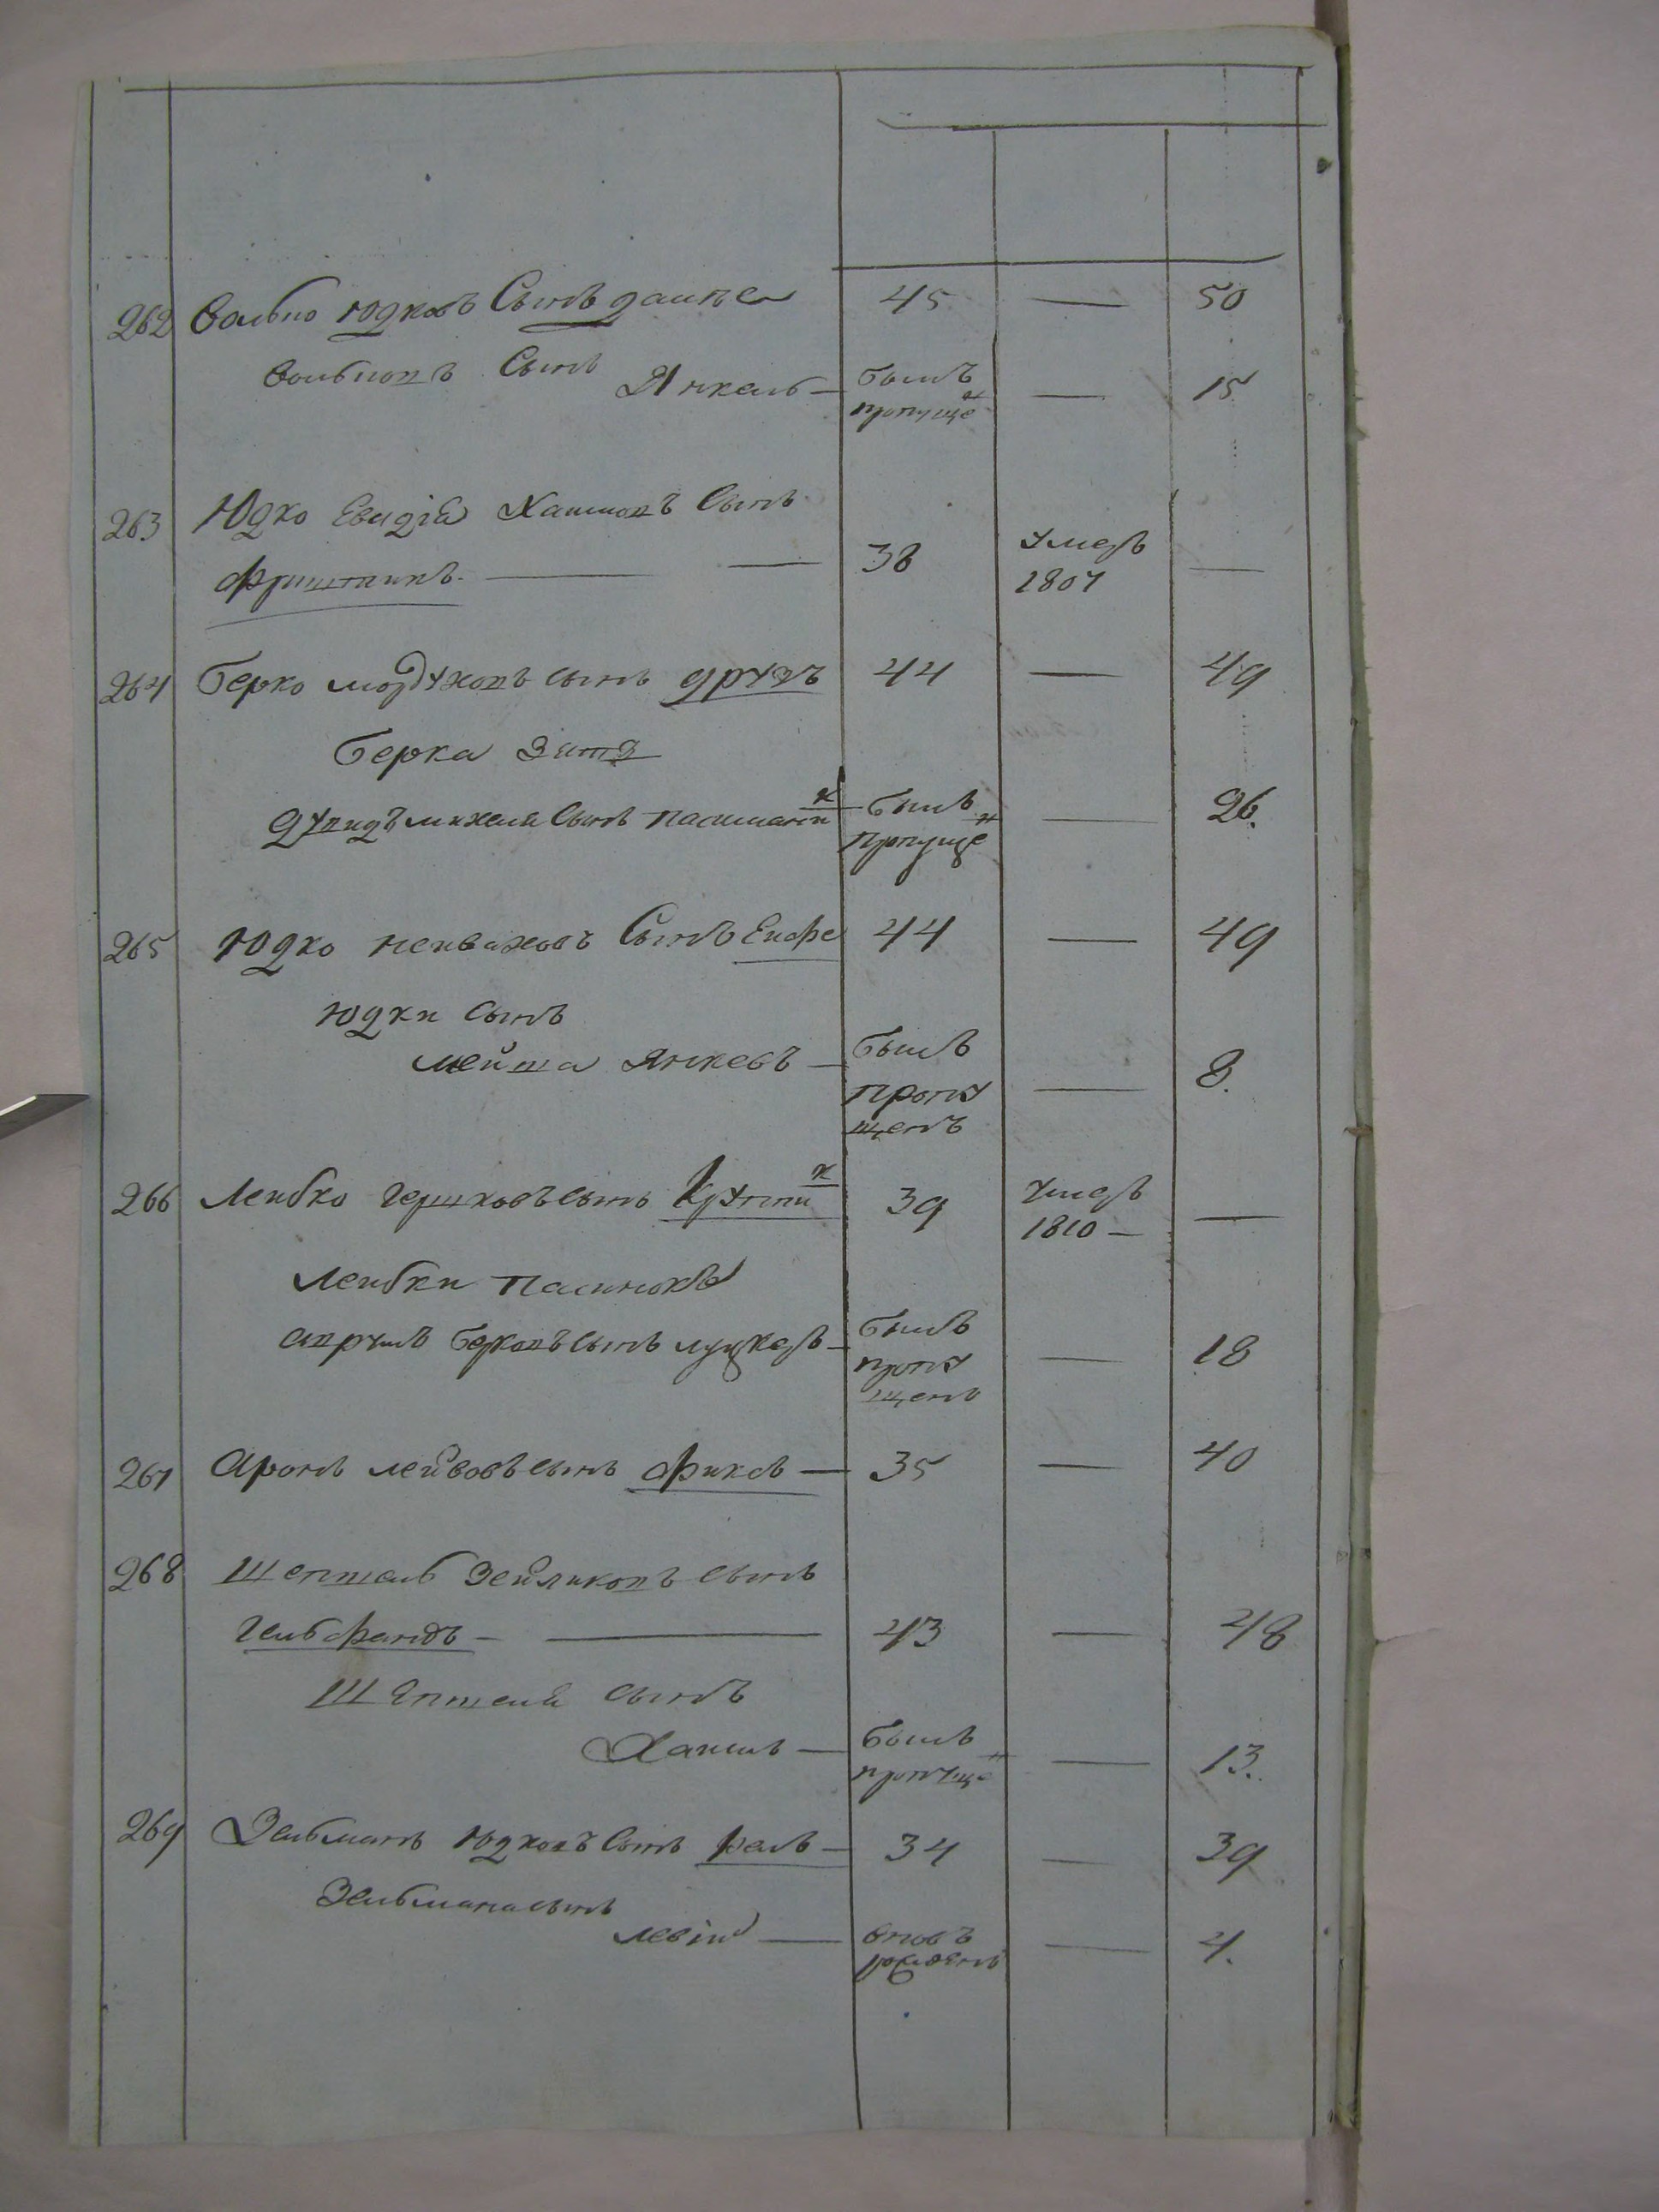 262 Вольпо Юдковъ Сынъ даине 45 — 50
Вольповъ Сынъ
Янкель — былъ пропущен — 15
263 Юдко Евидiя Хаимовъ Сынъ
Фриштикъ — — 38 умеръ 1807 —
264 Берко мордуховъ сынъ друзъ 44 — 49
Берка Зять
Дувидъ михеля Сынъ пасманик — былъ пропущен — 26.
265 Юдко Сынъ 44 — 49
Юдки сынъ
мейта янкевъ — былъ пропущенъ — 8.
266 Лейбко Гершковъ сынъ Крупник 39 умеръ 1810 — —
Лейбки пасинокъ
Берковъ сынъ луцкеръ — былъ пропущенъ — 18
267 Аронъ лейбовъ сынъ фиксъ — 35 — 40
268 Шепшель Зейликовъ сынъ
Гельфандъ — — 43 — 48
Шепшеля сынъ
Хаимъ — былъ пропущен — 13.
269 Зельманъ Юдковъ Сынъ — 34 — 39
Зельмана сынъ
левiн — вновь рожденъ — 4.